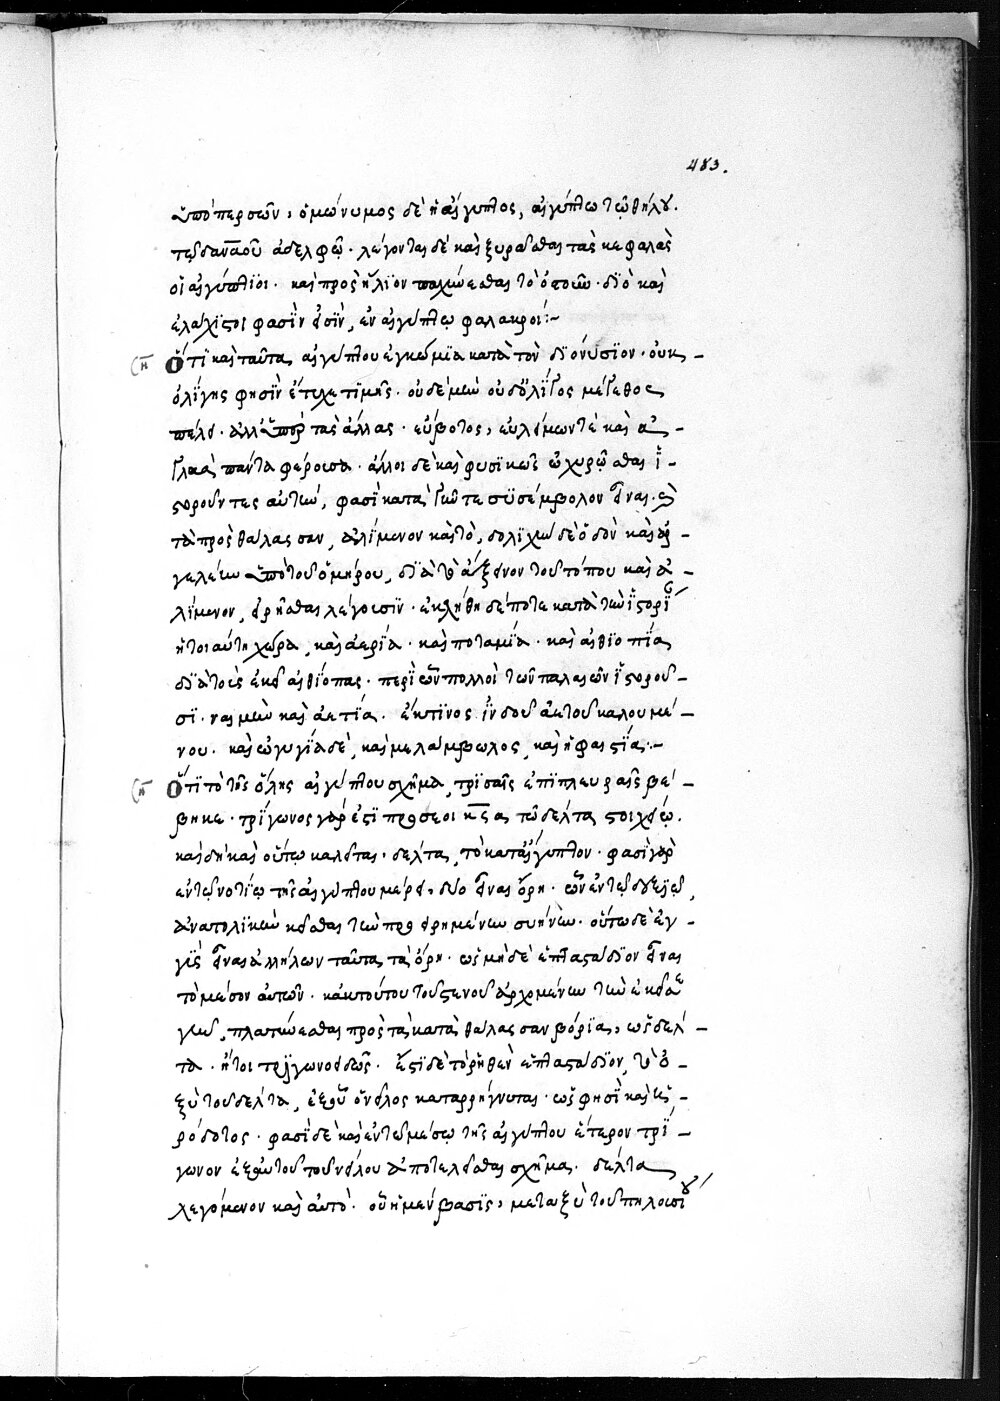 483.
ὑπὸ περσῶν, ὁμώνυμος δὲ ἡ αἴγυπτος, αἰγύπτω τῶ θήλυ.
τε δαναοῦ ἀδελφῶ. λέγονται δὲ καὶ ξυρᾶσθαι τὰς κεφαλὰς
οἱ αἰγύπτιοι. καὶ πρὸς ἥλιον παχύνεσθαι τὸ ὀστοῦν. διὸ καὶ
ἐλάχιστοι φασὶν εἰσὶν, ἐν αἰγύπτω φαλακροί:~
Ὅτι καὶ ταῦτα αἰγύπτου ἐγκώμια κατὰ τὸν διονύσιον. οὐκ
ὀλίγης φησὶν ἔτυχε τιμῆς. οὐδὲ μὲν οὐδ' ὀλίγος μέγεθος
πέλει. ἀλλ' ὑπὲρ τὰς ἄλλας. εὔβοτος, εὐλείμων τὲ καὶ ἀ
γλαὰ πάντα φέρουσα. ἄλλοι δὲ καὶ φυσικῶς ὠχυρῶσθαι ἱ
στοροῦντες αὐτὴν, φασὶ κατὰ γοῦν τε δυσέμβολον εἶναι. καὶ
τὰ πρὸς θάλασσαν, ἀλίμενον καὶ τὸ, δολιχὴν δὲ ὁδὸν καὶ ἀρ
γαλέην ὑπὸ τοῦ ὁμήρου, διὰ τὸ ἄξενον τοῦ τόπου καὶ ἀ
λίμενον, εἰρῆσθαι λέγουσιν. ἐκλήθη δέ ποτε κατὰ τὴν ἱστορί
ἤτοι αὕτη χώρα, καὶ ἀερία. καὶ ποταμία. καὶ αἰθιοπία
διὰ τοὺς ἐκεῖ αἰθίοπας. περὶ ὧν πολλοὶ τῶν παλαιῶν ἱστοροῦ
σι. ναὶ μὲν καὶ ἀετία. ἔκ τινος ἰνδοῦ ἀετοῦ καλουμέ
νου. καὶ ὠγυγία δὲ, καὶ μελάμβωλος, καὶ ἡφαιστία:~
Ὅτι τὸ τῆς ὅλης αἰγύπτου σχῆμα, τρισσαῖς ἐπὶ πλευραῖς βέ
βηκε. τρίγωνος γάρ ἐστι προσεοικυῖα τῶ δέλτα στοιχείω.
καὶ δὴ καὶ οὕτω καλεῖται. δέλτα, τὸ κατ' αἴγυπτον. φασὶ γὰρ
ἐν τῶ νοτίω τῆς αἰγύπτου μέρει, δύο εἶναι ὄρη. ὧν ἐν τῶ
ἀνατολικὴν κεῖσθαι τὴν προειρημένην συήνην. οὕτω δὲ ἐγ
γὺς εἶναι ἀλλήλων ταῦτα τὰ ὄρη. ὡς μὴ δὲ ἑπταστάδιον εἶναι
τὸ μέσον αὐτῶν. κἀκ τούτου τοῦ στενοῦ ἀρχομένην τὴν ἐκεῖσε
γῆν, πλατύνεσθαι πρὸς τὰ κατὰ θάλασσαν βόρεια, ὡς δέλ
τα. ἤτοι τριγωνοειδῶς. ἔστι δὲ τὸ ῥηθὲν ἑπταστάδιον, τὸ ὀ
ξὺ τοῦ δέλτα, ἐξ οὗ ὁ νεῖλος καταρρήγνυται. ὡς φησὶ καὶ ἡ
ρόδοτος. φασὶ δὲ καὶ ἐν τῶ μέσω τῆς αἰγύπτου ἕτερον τρί
γωνον ἐξ αὐτοῦ τοῦ νείλου ἀποτελεῖσθαι σχῆμα. δέλτα
λεγόμενον καὶ αὐτό. οὗ ἡ μὲν βάσις, μεταξὺ τοῦ πηλουσι